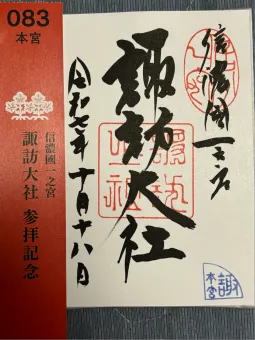 083
本宮
信濃國一之宮
諏訪大社 参拝記念
信濃國一之宮
諏訪大社
令和七年十月十八日
諏訪
大社
本宮
諏